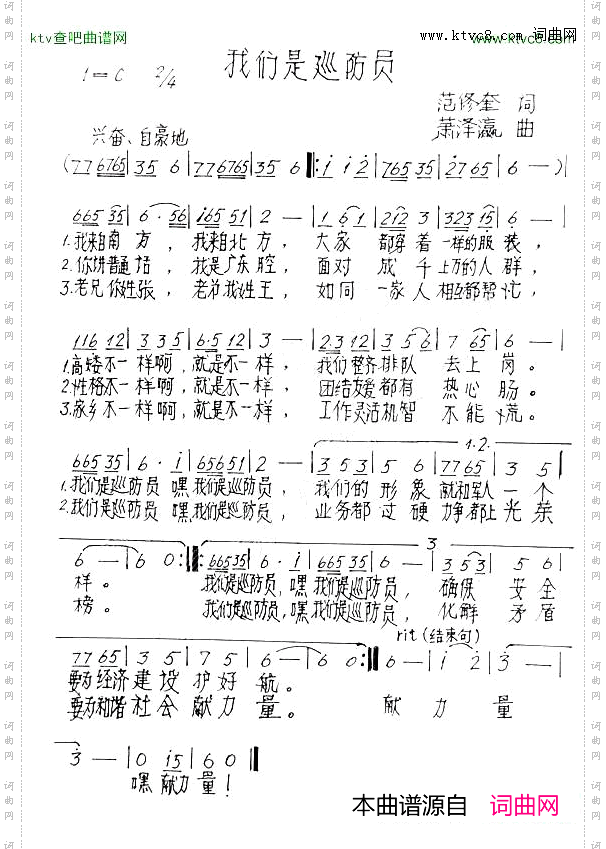 ktv查吧曲谱网
www.ktvc8.com 词曲网
www.ktvc8.com
我们是巡防员
1=C 2/4
范修奎 词
萧泽瀛 曲
兴奋、自豪地
(77 6765|35 6|77 6765|35 6‖:i i2|765 35|2765|6—)|
665 35|6·56|i65 51|2—|1 61|212 3|323 15|6—|
1.我来自南方，我来自北方，大家都穿着一样的服装，
2.你讲普通话，我是广东腔，面对成千上万的人群，
3.老兄你姓张，老弟我姓王，如同一家人相互都帮忙，
116 12|3 35|6·5 12|3—|2·3 12|3 56|7 65|6—|
1.高矮不一样啊，就是不一样，我们整齐排队去上岗。
2.性格不一样啊，就是不一样，团结友爱都有热心肠。
3.家乡不一样啊，就是不一样，工作灵活机智不能慌。
1.2.
665 35|6·i|656 51|2—|3 53|5 6|77 65|3 5|
1.我们是巡防员嘿我们是巡防员，我们的形象就和军人一个
2.我们是巡防员嘿我们是巡防员，业务都过硬力争都上光荣
3
6—|6 0:‖:665 35|6·i|665 35|6—|3 53|5 6|
样。我们是巡防员，嘿我们是巡防员，确保安全
榜。我们是巡防员，嘿我们是巡防员，化解矛盾
rit(结束句)
77 65|3 5|7 5|6—|6 0:‖6—|i 2|3—|
要为经济建设护好航。
要为和谐社会献力量。献力量
3—|0 i5|6 0‖
嘿献力量！
本曲谱源自 词曲网